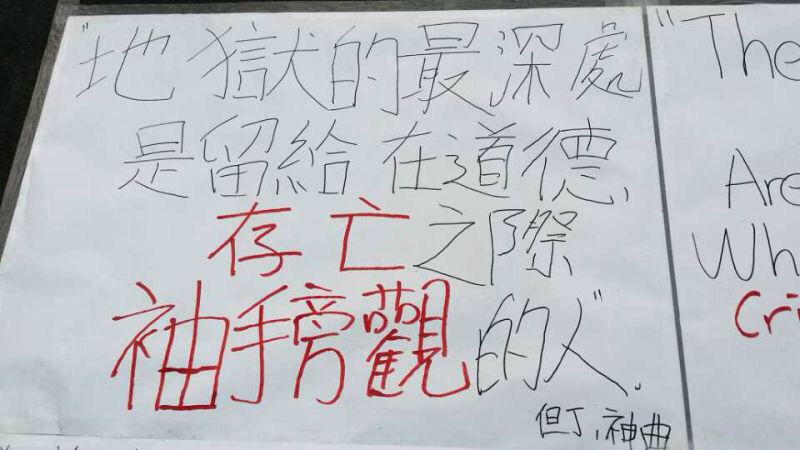 "地獄的最深處
是留給在道德,
存亡之際
袖手旁觀的人".
但丁,神曲
"The
Are
Wh
Cri